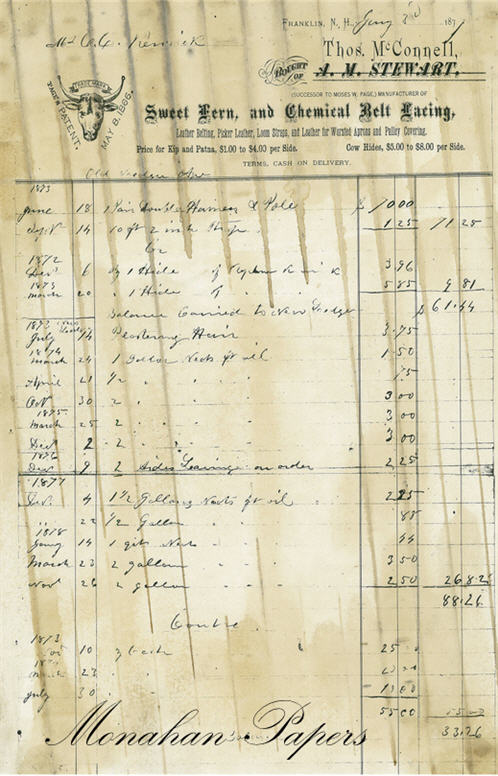 FRANKLIN, N. H. Jany 2nd 187
Mr
Thos. McConnell,
BOUGHT OF A. M. STEWART,
(SUCCESSOR TO MOSES W. PAGE,) MANUFACTURER OF
TRADE MARK
PAGE'S PATENT. MAY 8, 1866.
Sweet Fern, and Chemical Belt Lacing,
Leather Belting, Picker Leather, Loom Straps, and Leather for Worsted Aprons and Pulley Covering.
Price for Kip and Patna, $1.00 to $4.00 per Side. Cow Hides, $5.00 to $8.00 per Side.
TERMS, CASH ON DELIVERY.
Old
1873
June 18 1 Pair Double Harness & Pole $
Sept 14 10 ft 2 inch 1 25 71 25
Cr
1872
Decr 6 By 1 Hide of 3 96
1873
March 20 1 Hide 5 85 9 81
Balance Carried to New Ledger $ 61.44
1873
July 14 Plastering Hair 3.75
1874
March 24 1 Gallon Neats ft oil 1 50
April 21 1/2 " " " 75
Oct 30 2 " " " 3 00
1875
March 25 2 " " " 3 00
Decr 2 2 " " " 3 00
1876
Decr 9 2 Sides Lacing on order 2 25
1877
Decr 4 1 1/2 Gallons Neats ft oil 2 25
22 1/2 Gallon 88
1878
Jany 14 1 Neats 44
March 23 2 gallon 3 50
Novr 26 2 gallon 2 50 26 82
88.26
Contra
1873
10 By Cash 25
March 23
July 30
55 00 55 00
33.26
Monahan Papers